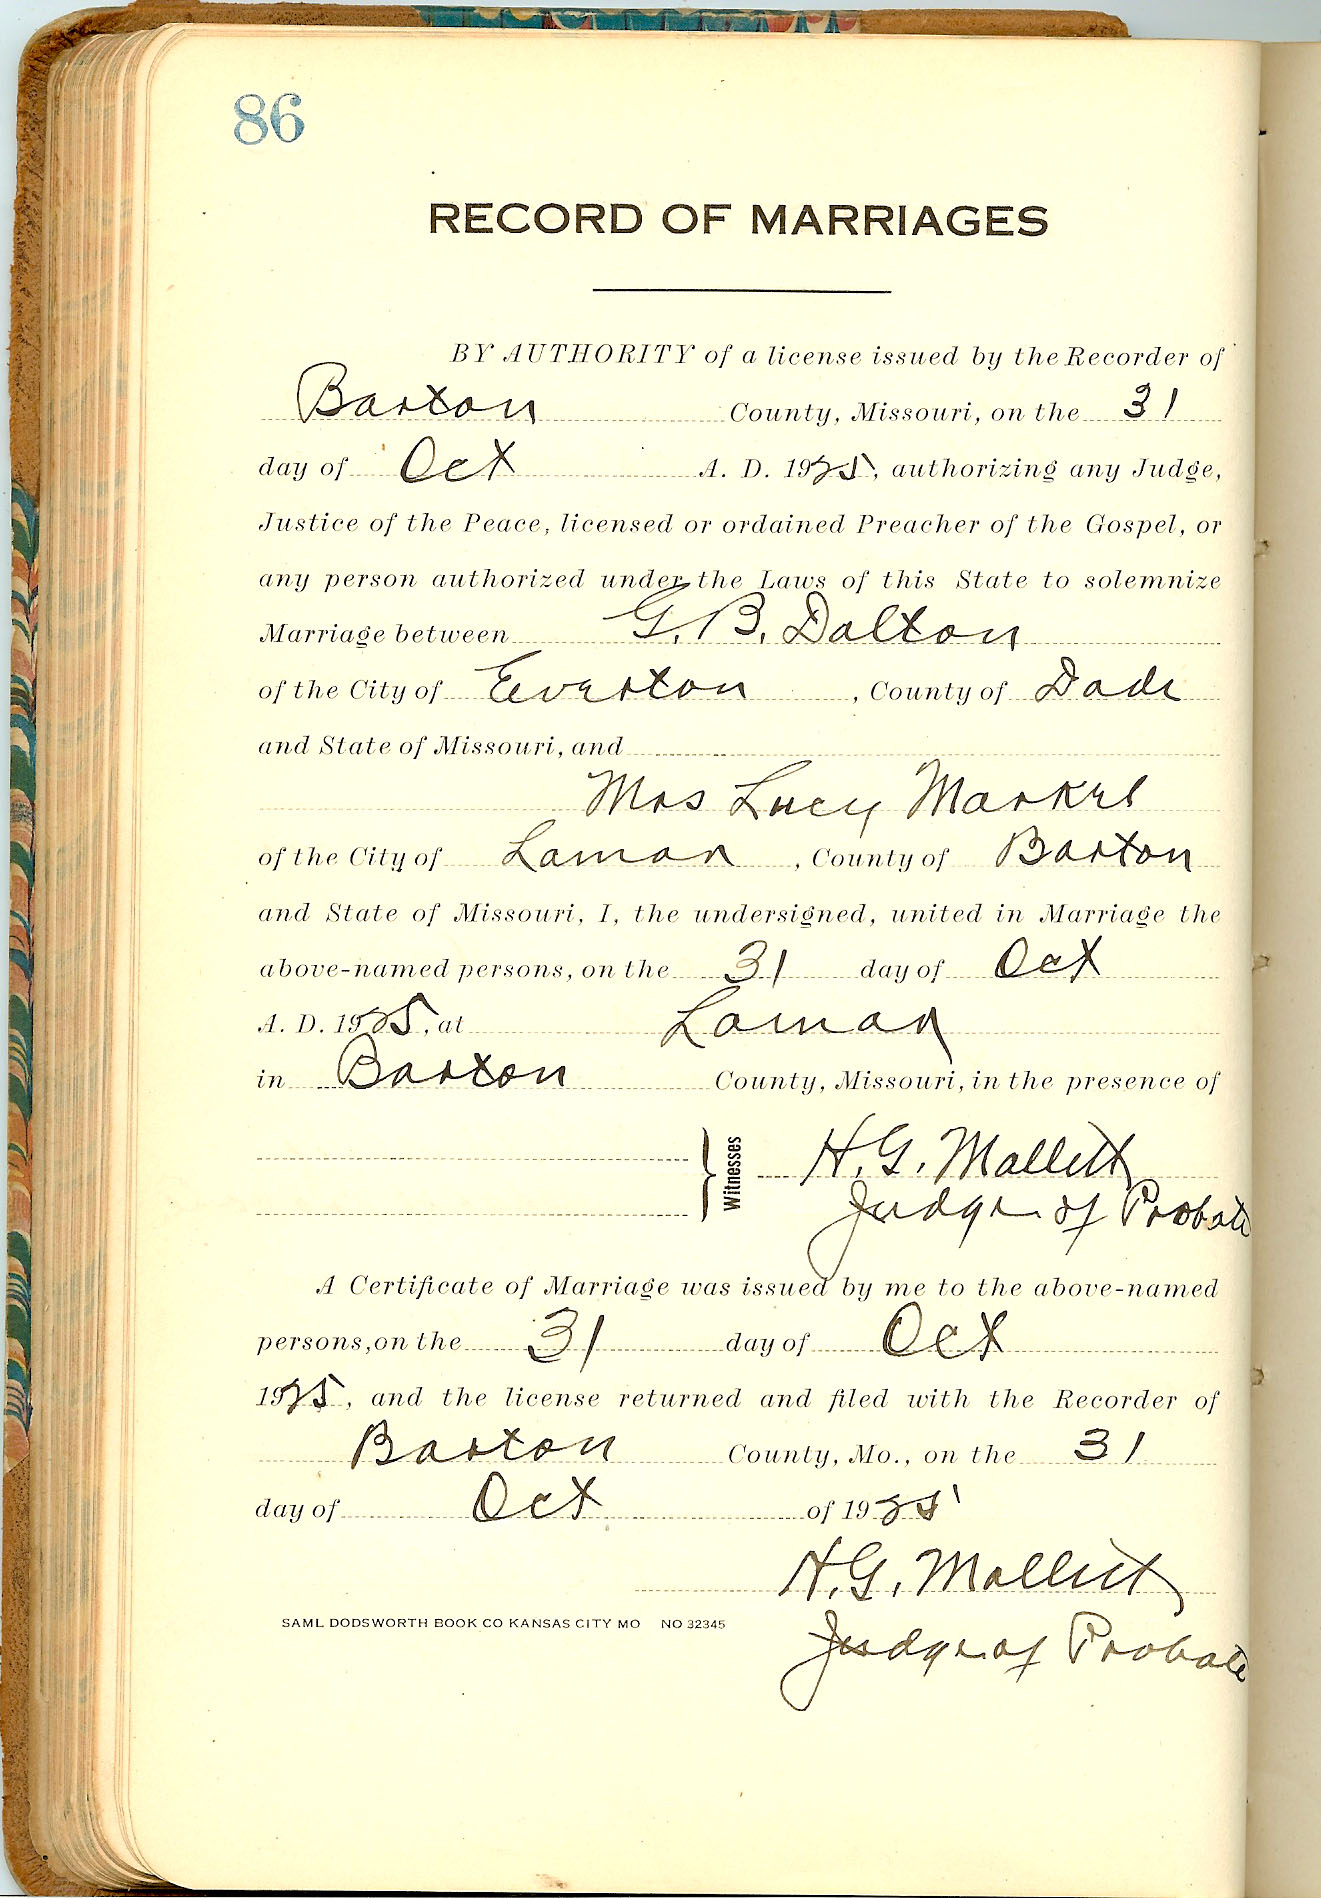 86
RECORD OF MARRIAGES
BY AUTHORITY of a license issued by the Recorder of
Barton County, Missouri, on the 31
day of Oct A. D. 1925, authorizing any Judge,
Justice of the Peace, licensed or ordained Preacher of the Gospel, or
any person authorized under the Laws of this State to solemnize
Marriage between G. B. Dalton
of the City of Everton, County of Dade
and State of Missouri, and
Mrs Lucy Markel
of the City of Lamar, County of Barton
and State of Missouri, I, the undersigned, united in Marriage the
above-named persons, on the 31 day of Oct
A. D. 1925, at Lamar
in Barton County, Missouri, in the presence of
Witnesses H. G. Mallett
Judge of Probate
A Certificate of Marriage was issued by me to the above-named
persons, on the 31 day of Oct
1925, and the license returned and filed with the Recorder of
Barton County, Mo., on the 31
day of Oct of 1925
H. G. Mallett
SAML DODSWORTH BOOK CO KANSAS CITY MO NO 32345
Judge of Probate